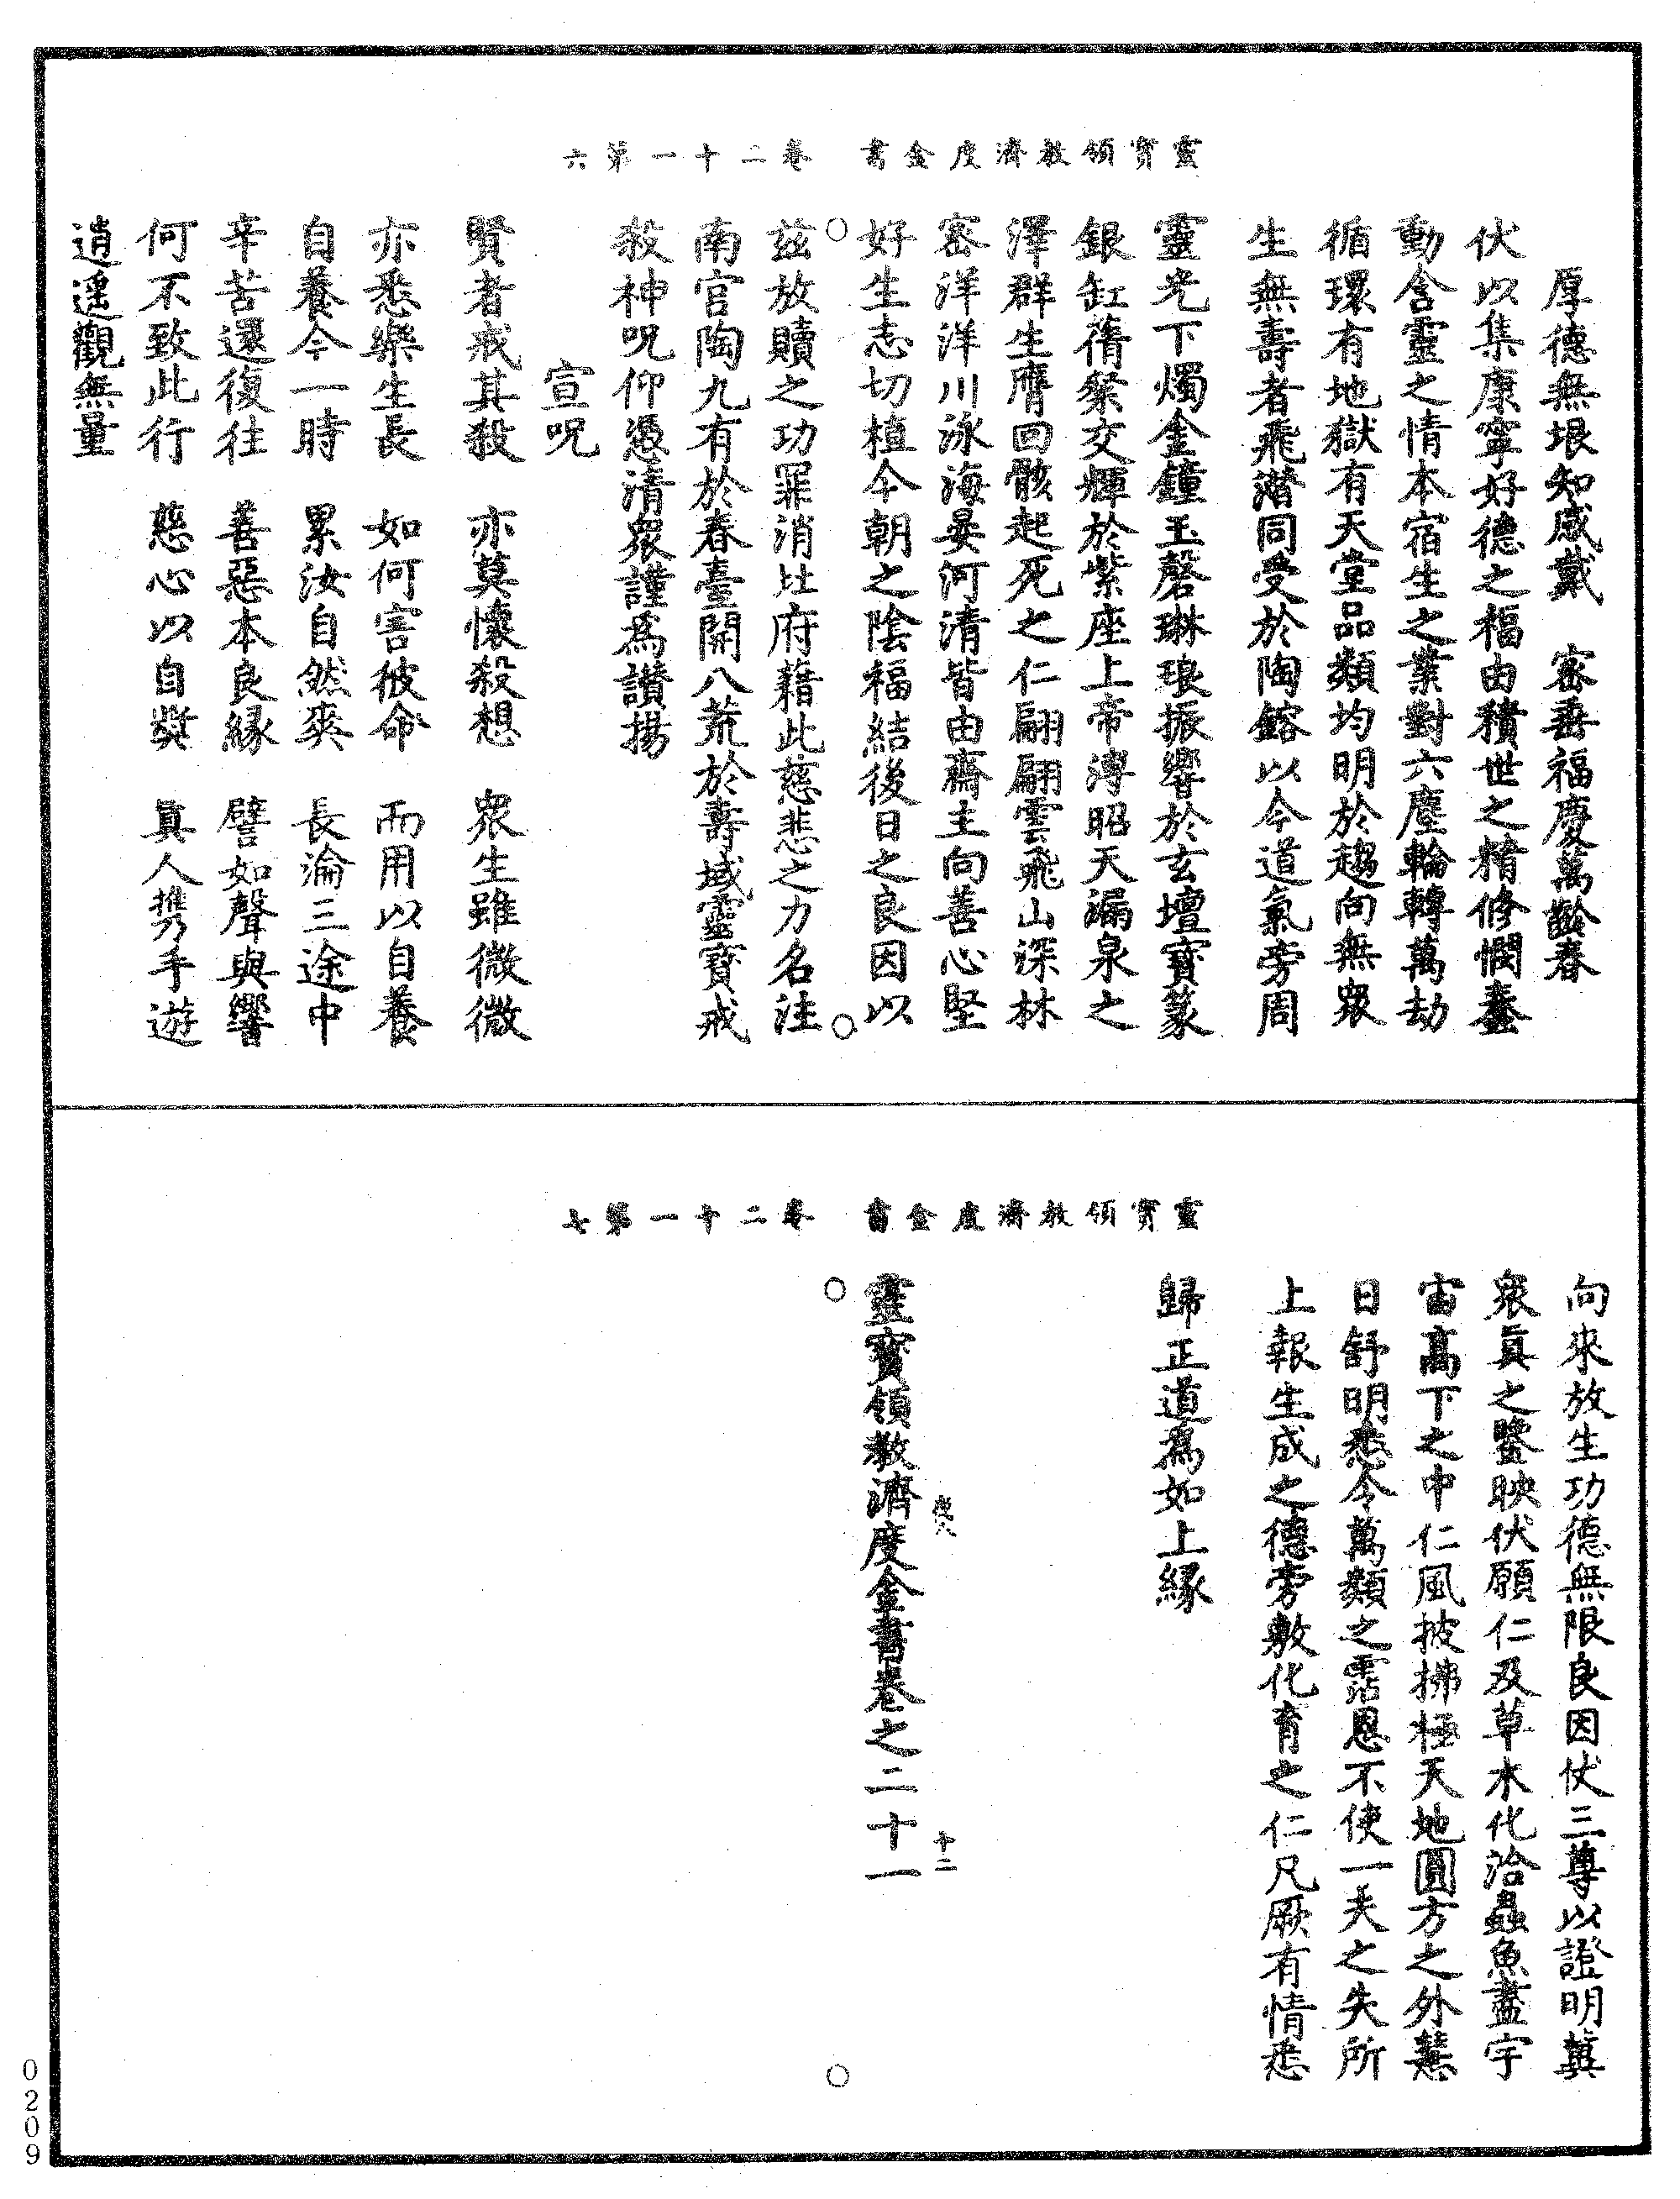 靈寶領教濟度金書　卷二十一第六
厚德無垠知感戴　密垂福慶萬齡春
伏以集康寧好德之福由積世之精修憫蠢
動含靈之情本宿生之業對六塵輪轉萬劫
循環有地獄有天堂品類均明於趨向無眾
生無壽者飛潛同受於陶鎔以今道氣旁周
靈光下燭金鐘玉磬琳琅振響於玄壇寶篆
銀缸蒨粲交輝於紫座上帝溥昭天漏泉之
澤群生膺回骸起死之仁翩翩雲飛山深林
密洋洋川泳海晏河清皆由齋主向善心堅
好生志切植今朝之陰福結後日之良因以
茲放贖之功罪消北府藉此慈悲之力名注
南宮陶九有於春臺開八荒於壽域靈寶戒
殺神呪仰憑清眾謹為讚揚
宣呪
賢者戒其殺　亦莫懷殺想　眾生雖微微
亦悉樂生長　如何害彼命　而用以自養
自養今一時　累汝自然來　長淪三途中
辛苦還復往　善惡本良緣　譬如聲與響
何不致此行　慈心以自獎　真人携手遊
逍遙觀無量
靈寶領教濟度金書　卷二十一第七
向來放生功德無限良因仗三尊以證明冀
眾真之鑒映伏願仁及草木化洽蟲魚盡宇
宙高下之中仁風披拂極天地圓方之外慧
日舒明悉令萬類之霑恩不使一夫之失所
上報生成之德旁敷化育之仁凡厥有情悉
歸正道為如上緣
十二
靈寶領教濟度金書卷之二十一
0209